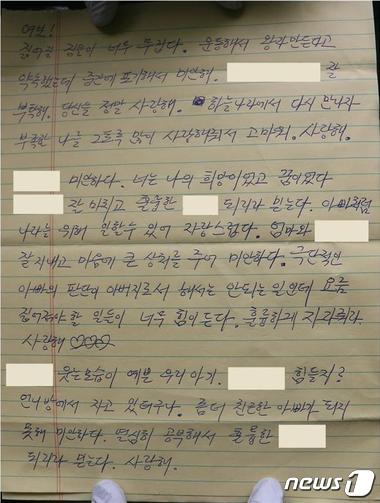 여보!
짊어질 짐들이 너무 무겁다. 운동해서 왕자만든다고
약속했는데 중간에 포기해서 미안해. 잘
부탁해. 당신을 정말 사랑해. 하늘나라에서 다시 만나자
부족한 나를 그토록 많이 사랑해줘서 고마워. 사랑해.
미안하다. 너는 나의 희망이었고 꿈이었다
잘 마치고 훌륭한 되리라 믿는다. 아빠처럼
나라를 위해 일할수 있어 자랑스럽다. 엄마와
잘 지내고 마음에 큰 상처를 주어 미안하다. 극단적인
아빠의 판단이 아버지로서 해서는 안되는 일인데 요즘
짊어져야할 일들이 너무 힘이 든다. 훌륭하게 자라줘라
사랑해
웃는모습이 예쁜 우리아가. 힘들지?
언니방에서 자고 있더구나. 좀더 친근한 아빠가 되지
못해 미안하다. 열심히 공부해서 훌륭한
되리라 믿는다. 사랑해.
news1